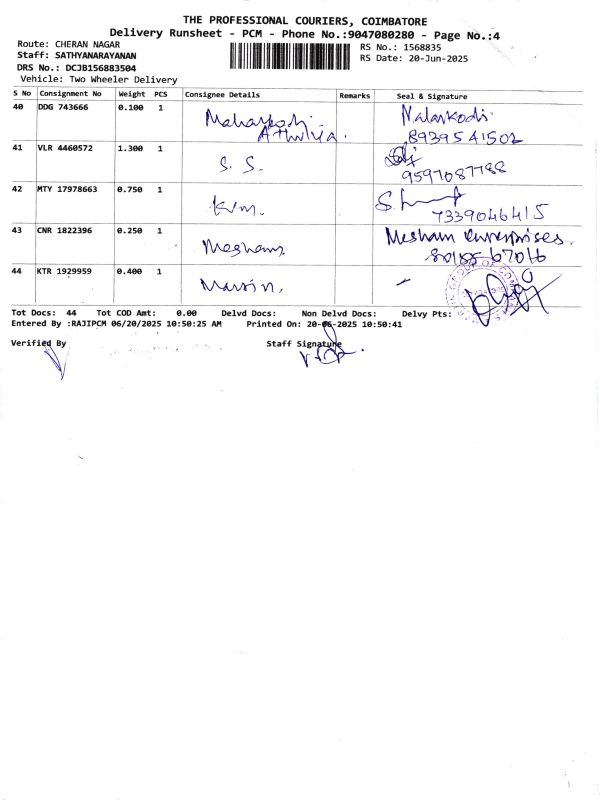 THE PROFESSIONAL COURIERS, COIMBATORE
Delivery Runsheet - PCM - Phone No.:9047080280 - Page No.:4
Route: CHERAN NAGAR
RS No.: 1568835
Staff: SATHYANARAYANAN
RS Date: 20-Jun-2025
DRS No.: DCJB156883504
Vehicle: Two Wheeler Delivery
S No Consignment No Weight PCS Consignee Details Remarks Seal & Signature
40 DDG 743666 0.100 1 Malarkodi
8939541502
41 VLR 4460572 1.300 1 S. S.
9597087788
42 MTY 17978663 0.750 1 Kvm.
7339046415
43 CNR 1822396 0.250 1 Mesham Enterprises.
44 KTR 1929959 0.400 1
Tot Docs: 44 Tot COD Amt: 0.00 Delvd Docs: Non Delvd Docs: Delvy Pts:
Entered By :RAJIPCM 06/20/2025 10:50:25 AM Printed On: 20-06-2025 10:50:41
Verified By Staff Signature